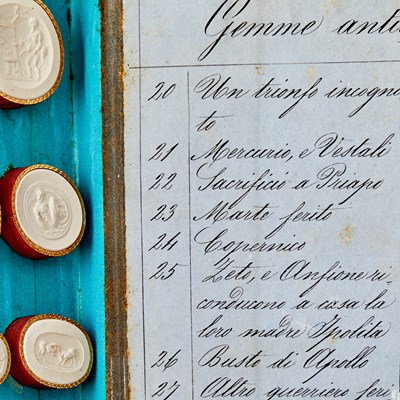 Gemme anti
20 Un trionfo incogni
to
21 Mercurio, e Vestali
22 Sacrificio a Priapo
23 Marte ferito
24 Copernico
25 Zeto, e Anfione ri
conducono a casa la
loro madre Ipolita
26 Busto di Apollo
27 Altro guerriero feri